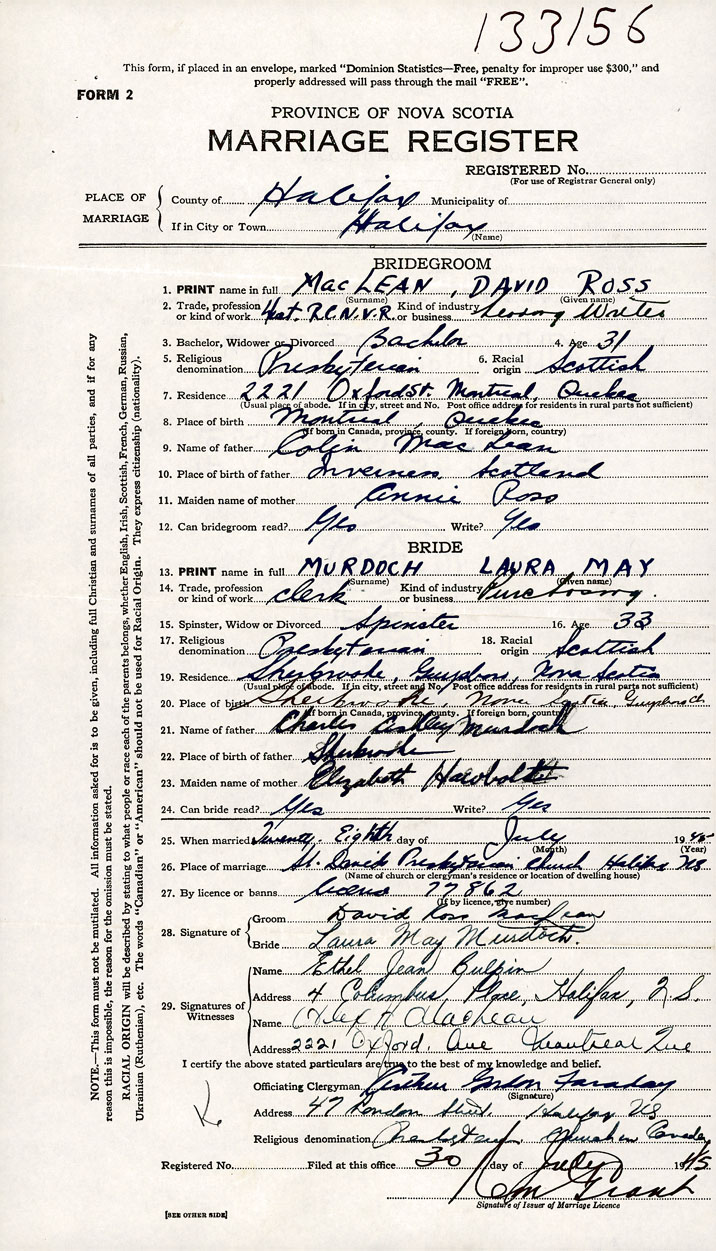 133156
This form, if placed in an envelope, marked "Dominion Statistics—Free, penalty for improper use $300," and
properly addressed will pass through the mail "FREE".
FORM 2
PROVINCE OF NOVA SCOTIA
MARRIAGE REGISTER
REGISTERED No.
(For use of Registrar General only)
PLACE OF MARRIAGE
County of Halifax Municipality of
If in City or Town Halifax
(Name)
BRIDEGROOM
1. PRINT name in full MacLEAN, DAVID ROSS
(Surname) (Given name)
2. Trade, profession or kind of work Lieut. R.C.N.V.R. Kind of industry or business Writer
3. Bachelor, Widower or Divorced Bachelor 4. Age 31
5. Religious denomination Presbyterian 6. Racial origin Scottish
7. Residence 2221 Oxford St Montreal, Quebec
(Usual place of abode. If in city, street and No. Post office address for residents in rural parts not sufficient)
8. Place of birth Montreal, Quebec
(If born in Canada, province, county. If foreign born, country)
9. Name of father Colin MacLean
10. Place of birth of father Inverness, Scotland
11. Maiden name of mother Annie Ross
12. Can bridegroom read? Yes Write? Yes
BRIDE
13. PRINT name in full MURDOCH LAURA MAY
(Surname) (Given name)
14. Trade, profession or kind of work Clerk Kind of industry or business
15. Spinster, Widow or Divorced Spinster 16. Age 33
17. Religious denomination Presbyterian 18. Racial origin Scottish
19. Residence Sherbrooke, Guysboro, Nova Scotia
(Usual place of abode. If in city, street and No. Post office address for residents in rural parts not sufficient)
20. Place of birth Sherbrooke, Nova Scotia
(If born in Canada, province, county. If foreign born, country)
21. Name of father Charles Ashley Murdoch
22. Place of birth of father Sherbrooke
23. Maiden name of mother Elizabeth
24. Can bride read? Yes Write? Yes
25. When married Twenty Eighth day of July 1945
(Month) (Year)
26. Place of marriage St. David Presbyterian Church Halifax NS
(Name of church or clergyman's residence or location of dwelling house)
27. By licence or banns license 77862
(If by licence, give number)
28. Signature of
Groom David Ross MacLean
Bride Laura May Murdoch.
29. Signatures of Witnesses
Name Ethel Jean Bulpin
Address 4 Columbus Place, Halifax, N.S.
Name Alex H MacLean
Address 2221 Oxford. Ave Montreal Que
I certify the above stated particulars are true to the best of my knowledge and belief.
Officiating Clergyman Arthur Gordon Faraday
(Signature)
Address 47 London Street Halifax NS
Religious denomination Presbyterian Church in Canada
Registered No. Filed at this office 30 day of July 1945
Grant
Signature of Issuer of Marriage Licence
[SEE OTHER SIDE]
NOTE.—This form must not be mutilated. All information asked for is to be given, including full Christian and surnames of all parties, and if for any
reason this is impossible, the reason for the omission must be stated.
RACIAL ORIGIN will be described by stating to what people or race each of the parents belongs, whether English, Irish, Scottish, French, German, Russian,
Ukrainian (Ruthenian), etc. The words "Canadian" or "American" should not be used for Racial Origin. They express citizenship (nationality).